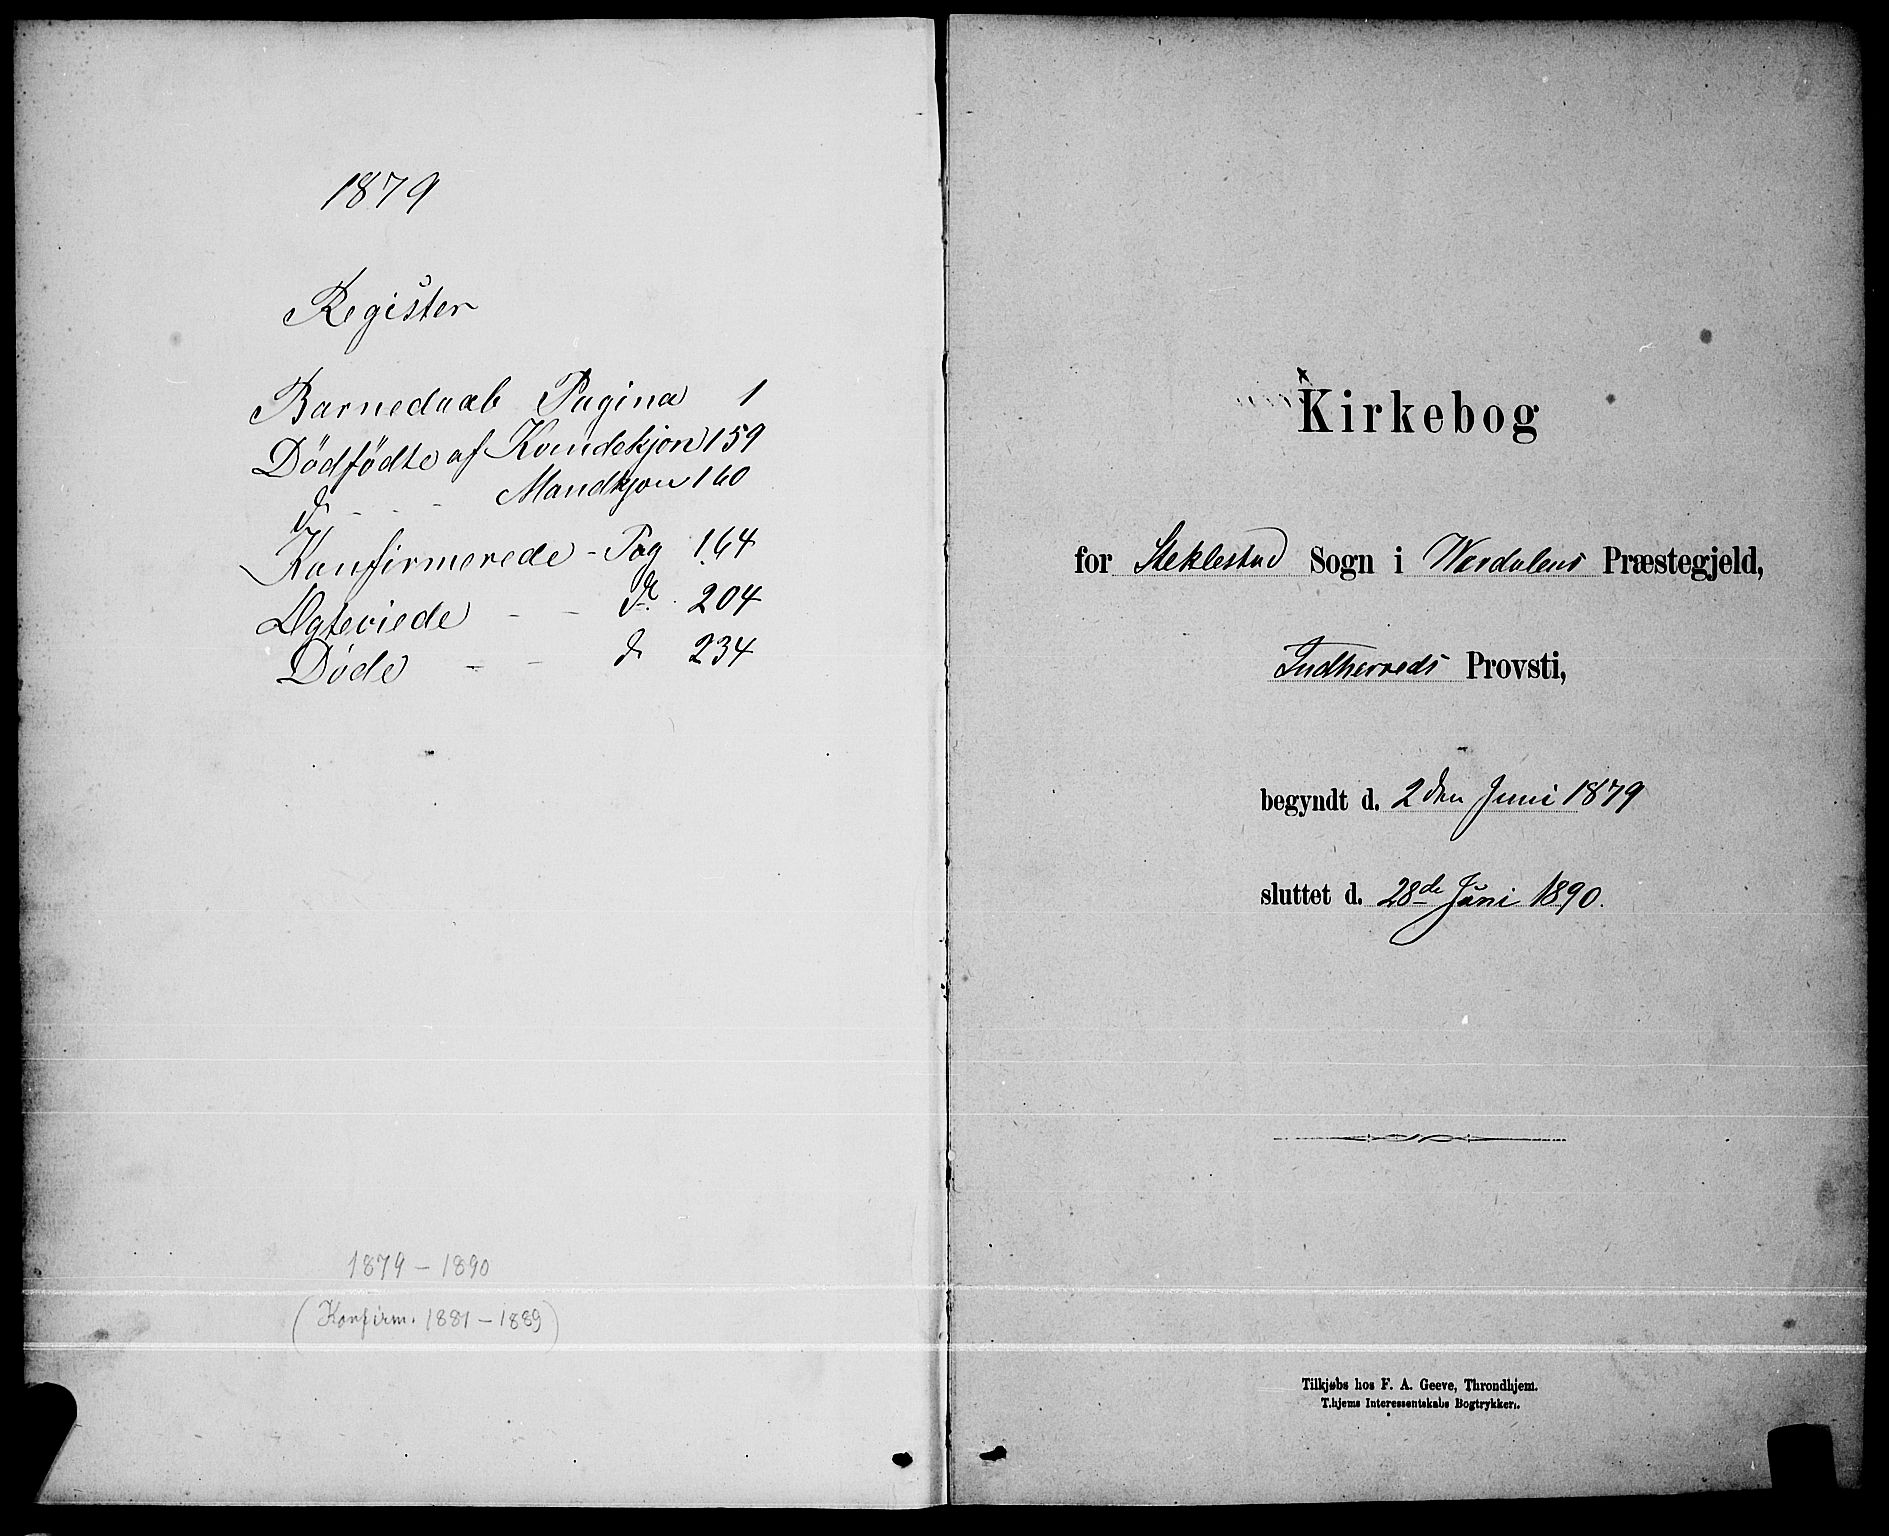 1879
Register
Barnedaab Pagina 1
Dødfødte af Kvindekjøn 159
d - - - Mandkjøn 160
Konfirmerede - Pag 164
Ægteviede - - d 204
Døde - - d 234
1879 - 1890
(Konfirm. 1881 - 1889)
Kirkebog
for Steklestad Sogn i Værdalens Præstegjeld,
Indherreds Provsti,
begyndt d. 2den Juni 1879
sluttet d. 28de Juni 1890.
Tilkjøbs hos F. A. Geeve, Throndhjem.
T.hjems Interessentskabs Bogtrykkeri.